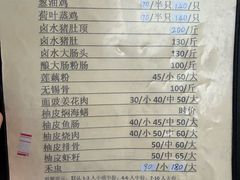 葱油鸡 70/半只 140/只
荷叶蒸鸡 70/半只 140/只
卤水猪肚顶 200/斤
卤水猪肚 130/斤
卤水大肠头 130/斤
酿大肠粉肠 100/斤
莲藕粉 45/小 60/大
无锡骨 100/斤
面豉姜花肉 30/小 40/中 50/大
柚皮焖海鳗 时价
柚皮鱼肠 45/小 50/中 60/大
柚皮烧肉 40/小 50/中 60/大
柚皮排骨 50/中 60/大
柚皮虾籽 50/中 65/大
禾虫 90/小 180/大